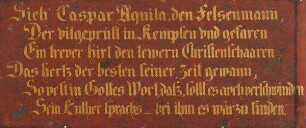 Sieh Caspar Aquila, den Felsenmann,
Der vilgeprüft in Kempfen vnd gefaren
Ein trever hirt den tewern Christenschaaren
Das hertz der besten seiner Zeit gewann,
So vest in Gottes Wort, dasz, sollt es auch verschwinden
Sein Luther sprachs — bei ihm es wär zu finden.